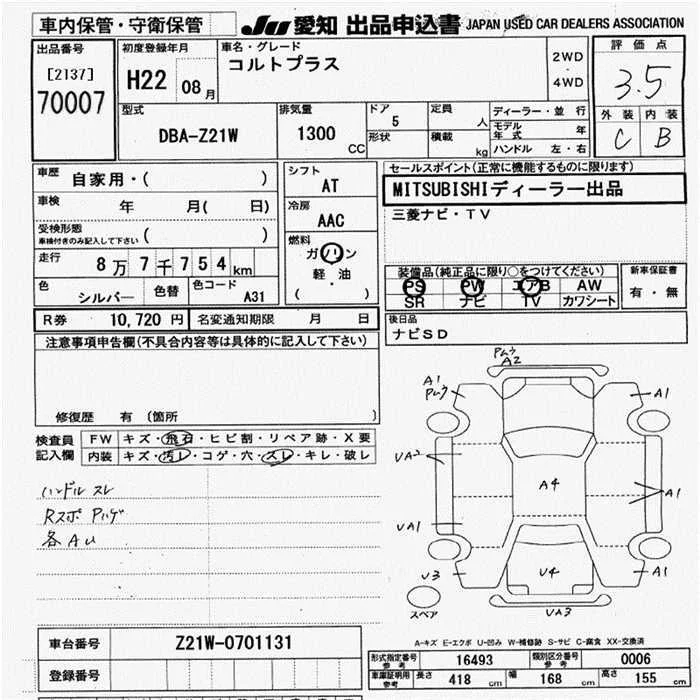 車内保管・守衛保管
JU 愛知 出品申込書 JAPAN USED CAR DEALERS ASSOCIATION
出品番号
[2137]
70007
初度登録年月
H22 08月
車名・グレード
コルトプラス
2WD
・
4WD
評価点
3.5
外装 内装
C B
型式
DBA-Z21W
排気量
1300
CC
ドア
5
形状
定員
人
積載
kg
ディーラー・並行
モデル年式 年
ハンドル 左・右
車歴
自家用・( )
車検
年 月( 日)
受検形態
車検付きのみ記入して下さい ( )
走行
8万7千754km
色
シルバー
色替
色コード
A31
シフト
AT
冷房
AAC
燃料
ガソリン
軽・油
( )
セールスポイント(正常に機能するものに限ります)
MITSUBISHIディーラー出品
三菱ナビ・TV
装備品(純正品に限り○をつけてください)
PS PW エアB AW
SR ナビ TV カワシート
新車保証書
有・無
後日品
ナビSD
R券 10,720円 名変通知期限 月 日
注意事項申告欄(不具合内容等は具体的に記入して下さい)
修復歴 有 (箇所 )
検査員
記入欄
FW キズ・飛石・ヒビ割・リペア跡・X要
内装 キズ・汚レ・コゲ・穴・スレ・キレ・破レ
ハンドル スレ
Rスポ Pハゲ
各AU
Pムラ
A2
A1
Pムラ
A1
UA2
A4
A1
UA1
U3
U4
A1
UA3
スペア
A-キズ E-エクボ U-凹み W-補修跡 S-サビ C-腐食 XX-交換済
車台番号
Z21W-0701131
登録番号
形式指定番号
参考
16493
類別区分番号
参考
0006
車庫証明用
参考
長さ 418 cm
幅 168 cm
高さ 155 cm